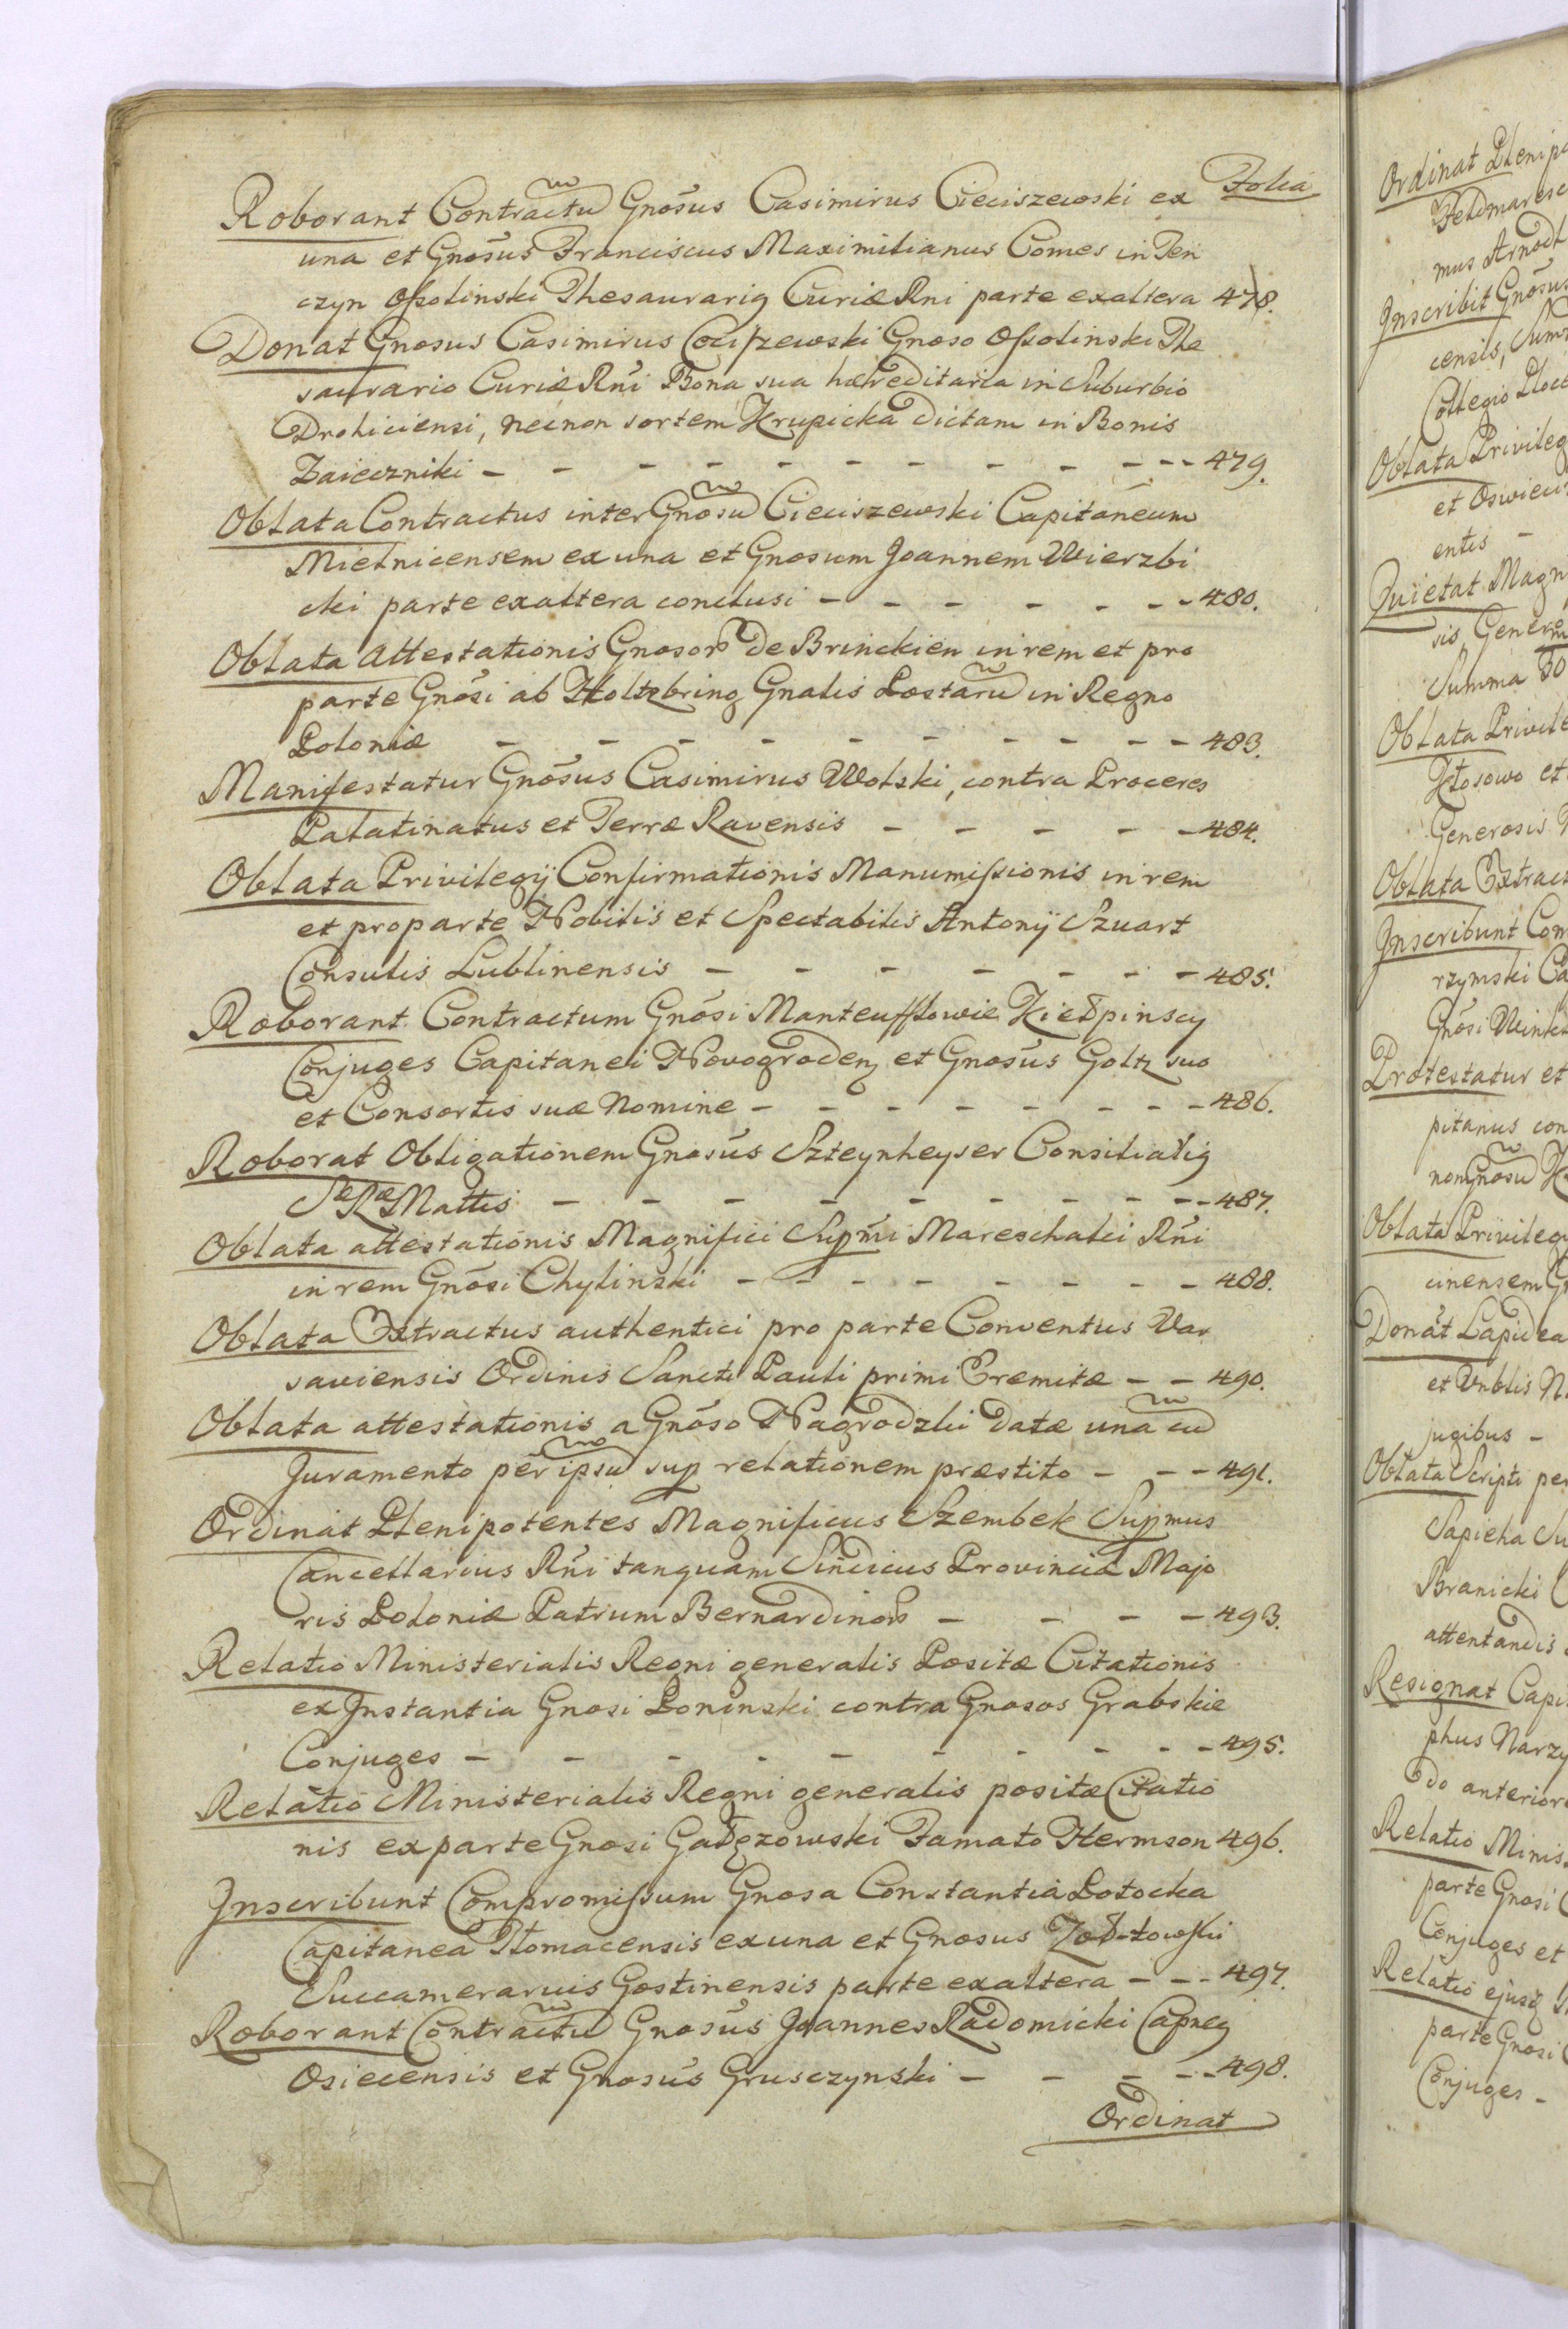 Folia
Roborant Contractu Gnosus Casimirus Cieciszewski ex
una et Gnosus Franciscus Maximilianus Comes in Ten
czyn Ossolinski Thesaurarig Curiæ Rni parte exaltera 478.
Donat Gnosus Casimirus Cociszewski Gnoso Ossolinski The
saurario Curiæ Rni Bona sua hæreditaria in Suburbio
Drohiciensi, necnon sortem Krupicka dictam in Bonis
Zaieczniki - - - - - - - - - - - 479.
Oblata Contractus inter Gnosu Cieciszewski Capitaneum
Mielnicensem ex una et Gnosum Joannem Wierzbi
cki parte exaltera conclusi - - - - - - - 480.
Oblata Attestationis Gnosor de Brinckien in rem et pro
parte Gnosi ab Holtzbring Gnalis Postaru in Regno
Poloniæ - - - - - - - - - - 483.
Manifestatur Gnosus Casimirus Wolski, contra Proceres
Palatinatus et Terræ Ravensis - - - - - 484.
Oblata Privilegij Confirmationis Manumissionis in rem
et pro parte Nobilis et Spectabilis Antonij Szuart
Consulis Lublinensis - - - - - - - 485.
Roborant Contractum Gnosi Manteufflowie Kiełpinscy
Conjuges Capitanei Novogrodenz et Gnosus Goltz suo
et Consortis suæ Nomine - - - - - - - - 486.
Roborat Obligationem Gnosus Szteynheyser Consiliarig
Sæ Ræ Mattis - - - - - - - - - 487.
Oblata attestationis Magnifici Supmi Mareschalci Rni
in rem Gnosi Chylinski - - - - - - - 488.
Oblata Extractus authentici pro parte Conventus Var
saviensis Ordinis Sancti Pauli primi Eremitæ - - 490.
Oblata attestationis a Gnoso Nagrodzki datæ una cu
Juramento per ipsu sup relationem præstito - - - 491.
Ordinat Plenipotentes Magnificus Szembek Supmus
Cancellarius Rni tanquam Sindicus Provinciæ Majo
ris Poloniæ Patrum Bernardinor - - - - 493.
Relatio Ministerialis Regni generalis Positæ Citationis
ex Instantia Gnosi Poninski contra Gnosos Grabskie
Conjuges - - - - - - - - - - 495.
Relatio Ministerialis Regni generalis positæ Citatio
nis ex parte Gnosi Gałęzowski Famato Hermson 496.
Inscribunt Compromissum Gnosa Constantia Potocka
Capitanea Tłomacensis ex una et Gnosus Zołtowski
Succamerarius Gostinensis parte exaltera - - - 497.
Roborant Contractu Gnosus Joannes Radomicki Capneg
Osiecensis et Gnosus Grusczynski - - - - - 498.
Ordinat
Ordinat Plenipo
Feldmaresc
mus Arnodt
Inscribit Gnosus
censis, Sum
Collegio Ploc
Oblata Privileg
et Oswieci
entis -
Quietat Magn
sis, Genero
Summa
Oblata Privile
Kłosowo et
Generosis
Oblata Extract
Inscribunt Com
rzymski Ca
Gnosi Wink
Protestatur et
pitanus con
non Gnosu
Oblata Privileg
cinensem G
Donat Lapidea
et Vnblis N
jugibus -
Oblata Scripti per
Sapieha Su
Branicki
attentandis
Resignat Capi
phus Narzy
do anterior
Relatio Minis
parte Gnosi
Conjuges et
Relatio ejusq
parte Gnosi
Conjuges -